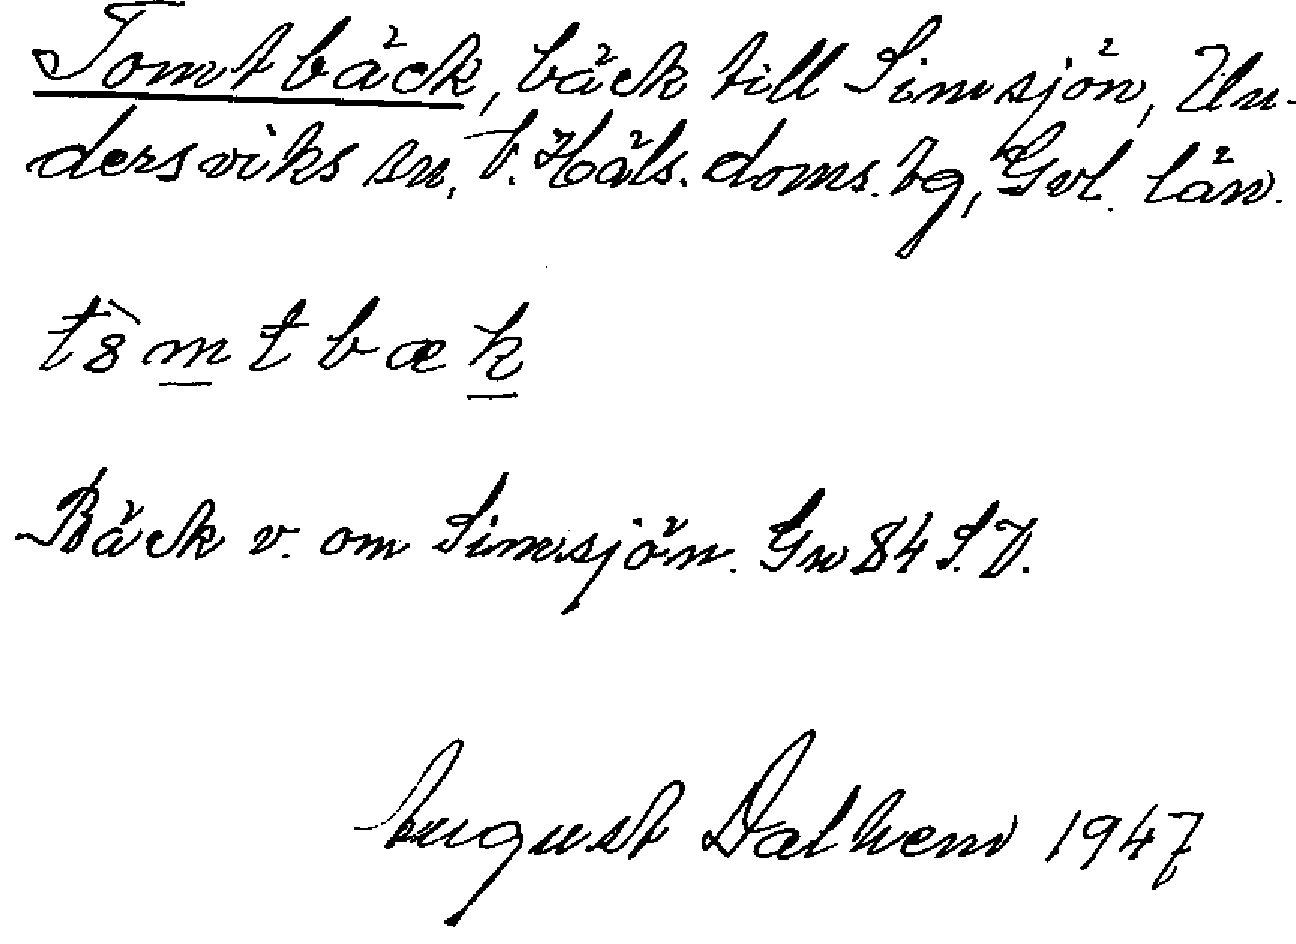 Tomtbäck, bäck till Simsjön, Un-
dersviks sn, V. Häls. doms. bg, Gvl. län.
tòmtbæk
Bäck v. om Simsjön. Gw 84 S.V.
August Dalhem 1947